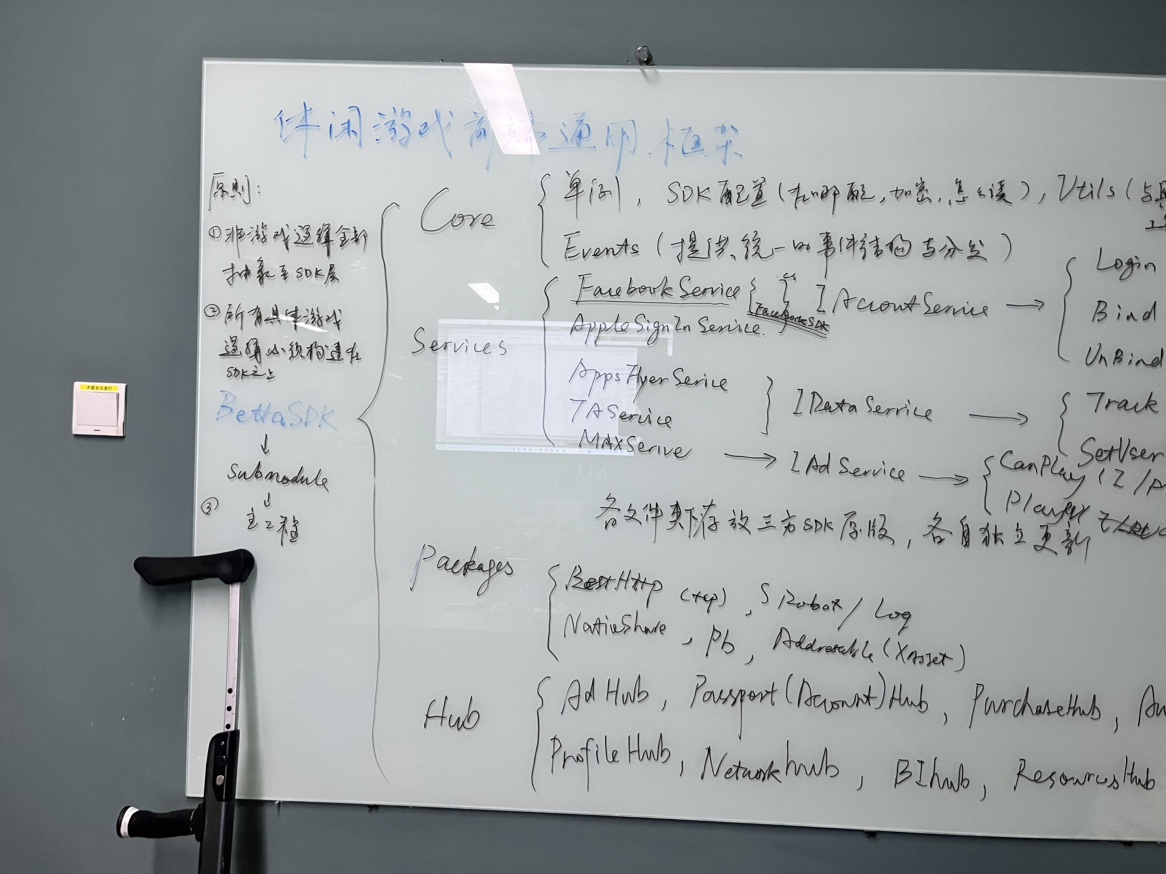 休闲游戏前端通用框架
原则:
① 非游戏逻辑全部
抽象至SDK层
② 所有具体游戏
逻辑必须构建在
SDK之上
BettaSDK
↓
Submodule
↓
③ 主工程
Core
单例, SDK配置(在哪配, 加密, 怎么读), Utils(与
Events (提供统一的事件结构与分发)
Services
FacebookService
FacebookSDK
AppleSignIn Service.
IAccountService →
Login
Bind
UnBind
AppsFlyerSerice
TAService
IDataService →
Track
SetUser
MAXServive → IAdService →
CanPlay
Play
各文件夹下存放三方SDK原版, 各自独立更新
Packages
BestHttp (tcp), SRobot / Log
NativeShare, Pb, Addressable (XAsset)
Hub
AdHub, Passport(Account)Hub, PurchaseHub,
ProfileHub, Networkhub, BIhub, ResourcesHub